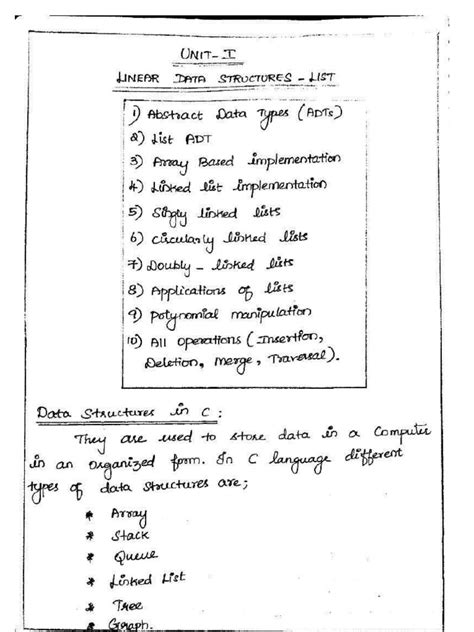 UNIT-I
LINEAR DATA STRUCTURES - LIST
1) Abstract Data Types (ADTs)
2) List ADT
3) Array Based implementation
4) Linked list implementation
5) Singly linked lists
6) Circularly linked lists
7) Doubly - linked lists
8) Applications of lists
9) Polynomial manipulation
10) All operations (Insertion,
Deletion, Merge, Traversal).
Data Structures in C :
They are used to store data in a Computer
in an organized form. In C language different
types of data structures are;
* Array
* Stack
* Queue
* Linked List
* Tree
* Graph.